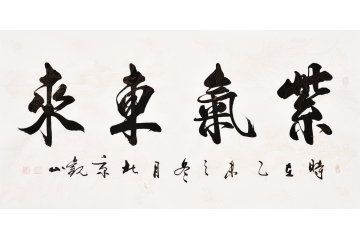 紫氣東來
時在乙未之冬月北京観山